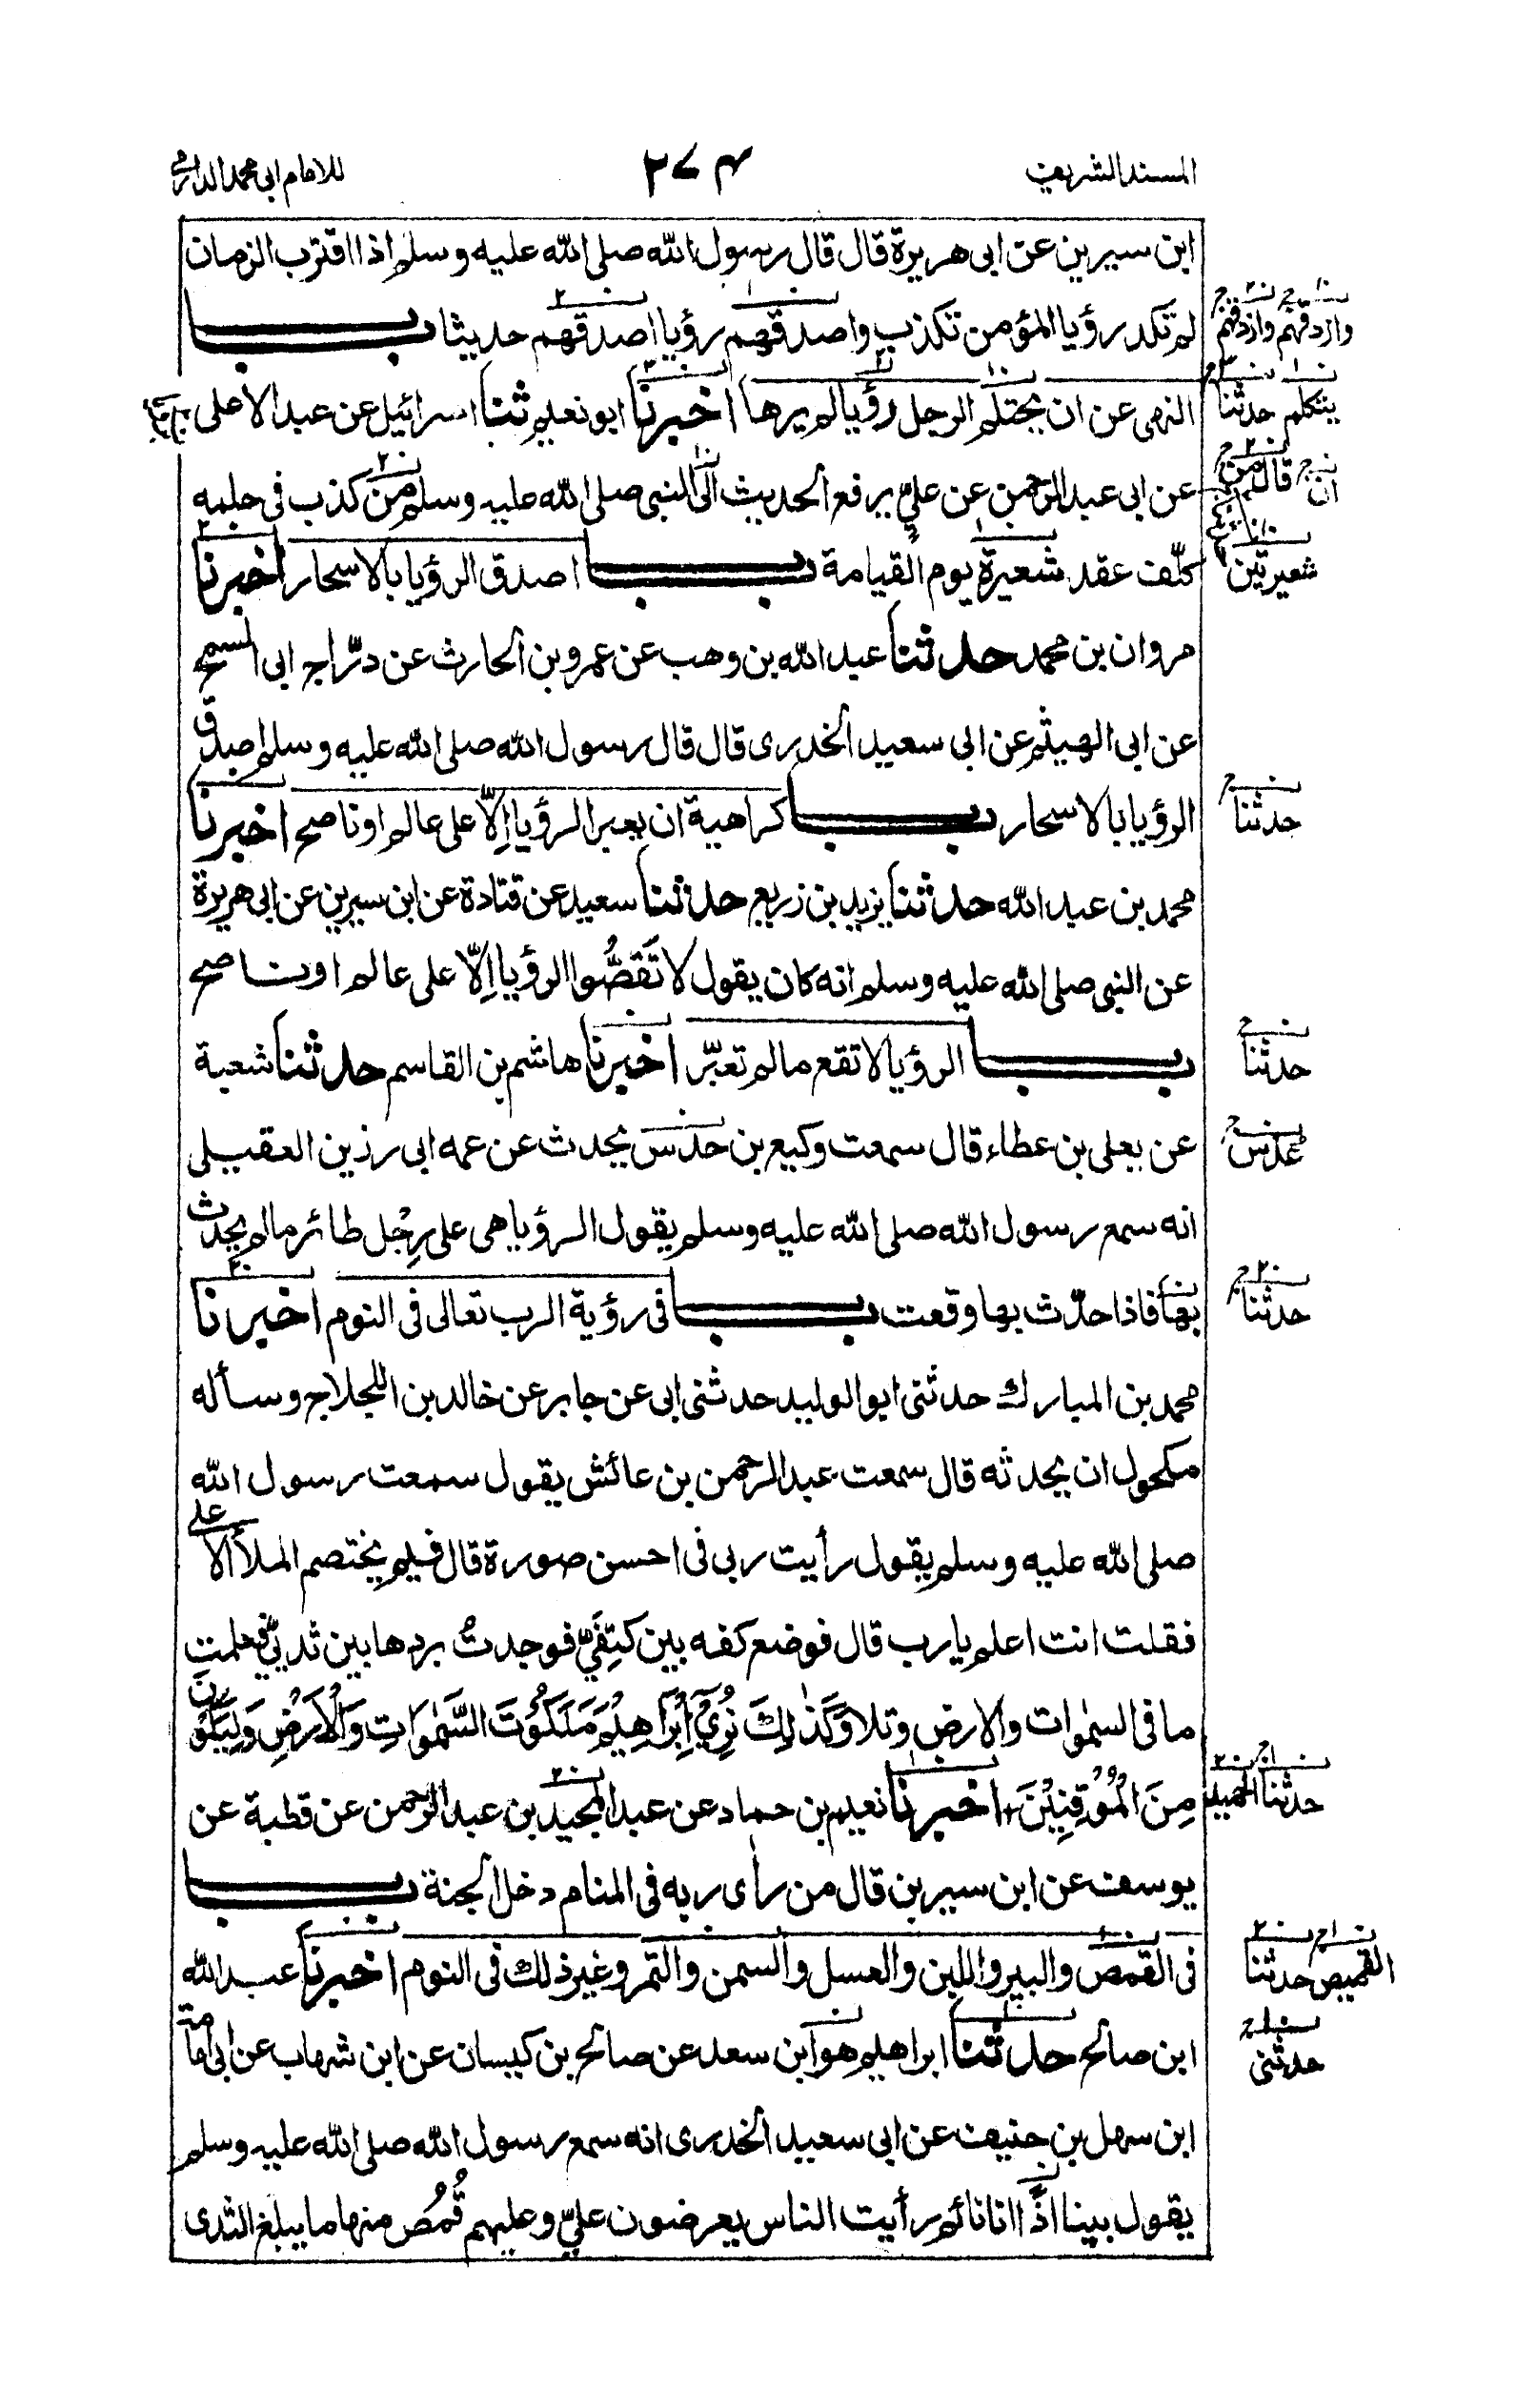 المسند الشريف ٢٧٣ للامام ابى محمد الدارمى
ابن سيرين عن ابى هريرة قال قال رسول الله صلى الله عليه وسلم اذا اقترب الزمان
لم تكد رؤيا المؤمن تكذب واصدقهم رؤيا اصدقهم حديثا باب
النهى عن ان يحتلم الرجل رؤيا لم يرها اخبرنا ابو نعيم ثنا اسرائيل عن عبد الاعلى
عن ابى عبد الرحمن عن علىّ يرفع الحديث الى النبى صلى الله عليه وسلم من كذب فى حلمه
كلّف عقد شعيرة يوم القيامة باب اصدق الرؤيا بالاسحار اخبرنا
مروان بن محمد حدثنا عبد الله بن وهب عن عمرو بن الحارث عن درّاج ابى السمح
عن ابى الهيثم عن ابى سعيد الخدرى قال قال رسول الله صلى الله عليه وسلم اصدق
الرؤيا بالاسحار باب كراهية ان يعبر الرؤيا اِلّا على عالم او ناصح اخبرنا
محمد بن عبد الله حدثنا يزيد بن زريع حدثنا سعيد عن قتادة عن ابن سيرين عن ابى هريرة
عن النبى صلى الله عليه وسلم انه كان يقول لا تَقُصُّوا الرؤيا اِلّا على عالم او ناصح
باب الرؤيا لا تقع ما لم تعبّر اخبرنا هاشم بن القاسم حدثنا شعبة
عن يعلى بن عطاء قال سمعت وكيع بن حدس يحدث عن عمه ابى رزين العقيلى
انه سمع رسول الله صلى الله عليه وسلم يقول الرؤيا هى على رِجْل طائر ما لم يحدث
بها فاذا حدّث بها وقعت باب فى رؤية الرب تعالى فى النوم اخبرنا
محمد بن المبارك حدثنى ابو الوليد حدثنى ابى عن جابر عن خالد بن اللجلاج وسأله
مكحول ان يحدثه قال سمعت عبد الرحمن بن عائش يقول سمعت رسول الله
صلى الله عليه وسلم يقول رأيت ربى فى احسن صورة قال فيم يختصم الملأ الاعلى
فقلت انت اعلم يا رب قال فوضع كفه بين كتِفَىّ فوجدتُ بردها بين ثديىّ فعلمت
ما فى السمٰوات والارض وتلا وَكَذٰلِكَ نُرِىْٓ اِبْرَاهِيْمَ مَلَكُوْتَ السَّمٰوَاتِ وَالْاَرْضِ وَلِيَكُوْنَ
مِنَ الْمُوْقِنِيْنَ اخبرنا نعيم بن حماد عن عبد المجيد بن عبد الرحمن عن قطبة عن
يوسف عن ابن سيرين قال من رأى ربه فى المنام دخل الجنة باب
فى القمص والبير واللبن والعسل والسمن والتمر وغير ذلك فى النوم اخبرنا عبد الله
ابن صالح حدثنا ابراهيم هو ابن سعد عن صالح بن كيسان عن ابن شهاب عن ابى امامة
ابن سهل بن حنيف عن ابى سعيد الخدرى انه سمع رسول الله صلى الله عليه وسلم
يقول بينا اذ انا نائم رأيت الناس يعرضون علىّ وعليهم قُمُص منها ما يبلغ الثدى
يتكلم حدثنا
ان قال من
شعيرتين
حدثنا
حدثنا
عدس
حدثنا
حدثنا الحميد
القميص حدثنا
حدثنى